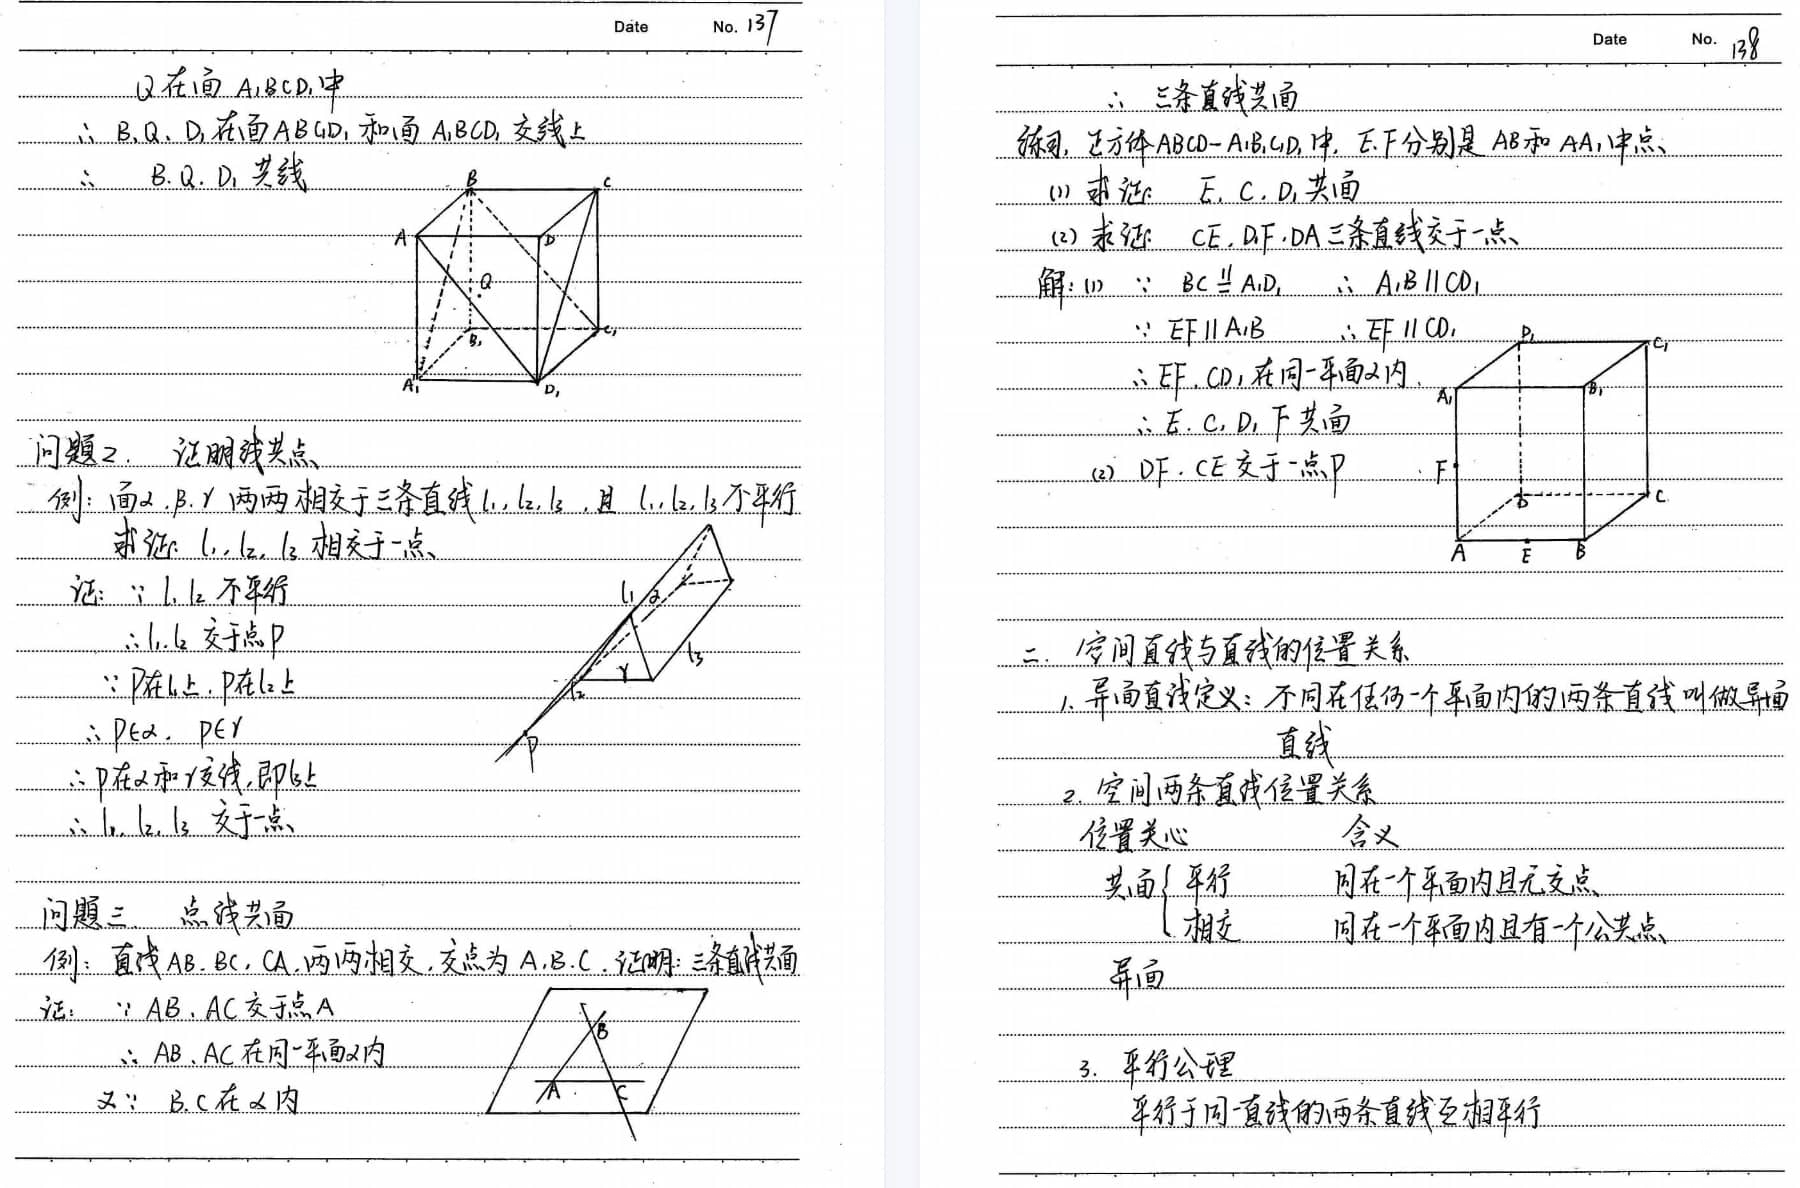 Date No. 137
Q在面 A₁BCD₁中
∴ B、Q、D₁在面ABC₁D₁ 和面 A₁BCD₁ 交线上
∴ B、Q、D₁ 共线
B
C
A
D
Q
B₁
C₁
A₁
D₁
问题2. 证明线共点
例：面α、β、γ 两两相交于三条直线l₁、l₂、l₃，且 l₁、l₂、l₃不平行
求证：l₁、l₂、l₃ 相交于一点
证：∵ l₁ l₂ 不平行
∴ l₁、l₂ 交于点P
∵ P在l₁上，P在l₂上
∴ P∈α，P∈γ
∴ P在α和γ交线，即l₃上
∴ l₁、l₂、l₃ 交于一点
l₁
α
l₃
γ
l₂
P
问题三 点线共面
例：直线AB、BC、CA，两两相交，交点为 A、B、C．证明：三条直线共面
证：∵ AB、AC 交于点A
∴ AB、AC在同一平面α内
又∵ B、C在α内
B
A
C
Date No. 138
∴ 三条直线共面
练习，正方体ABCD-A₁B₁C₁D₁中，E、F分别是 AB和AA₁中点
(1) 求证： E、C、D₁共面
(2) 求证： CE、D₁F、DA三条直线交于一点
解：(1) ∵ BC ∥= A₁D₁ ∴ A₁B∥CD₁
∵ EF∥A₁B ∴ EF∥CD₁
∴ EF、CD₁在同一平面α内
∴ E、C、D₁ F共面
(2) DF、CE交于一点P
D₁
C₁
A₁
B₁
F
D
C
A
E
B
二．空间直线与直线的位置关系
1．异面直线定义：不同在任何一个平面内的两条直线叫做异面
直线
2．空间两条直线位置关系
位置关心 含义
共面{ 平行 同在一个平面内且无交点
相交 同在一个平面内且有一个公共点
异面
3．平行公理
平行于同一直线的两条直线互相平行